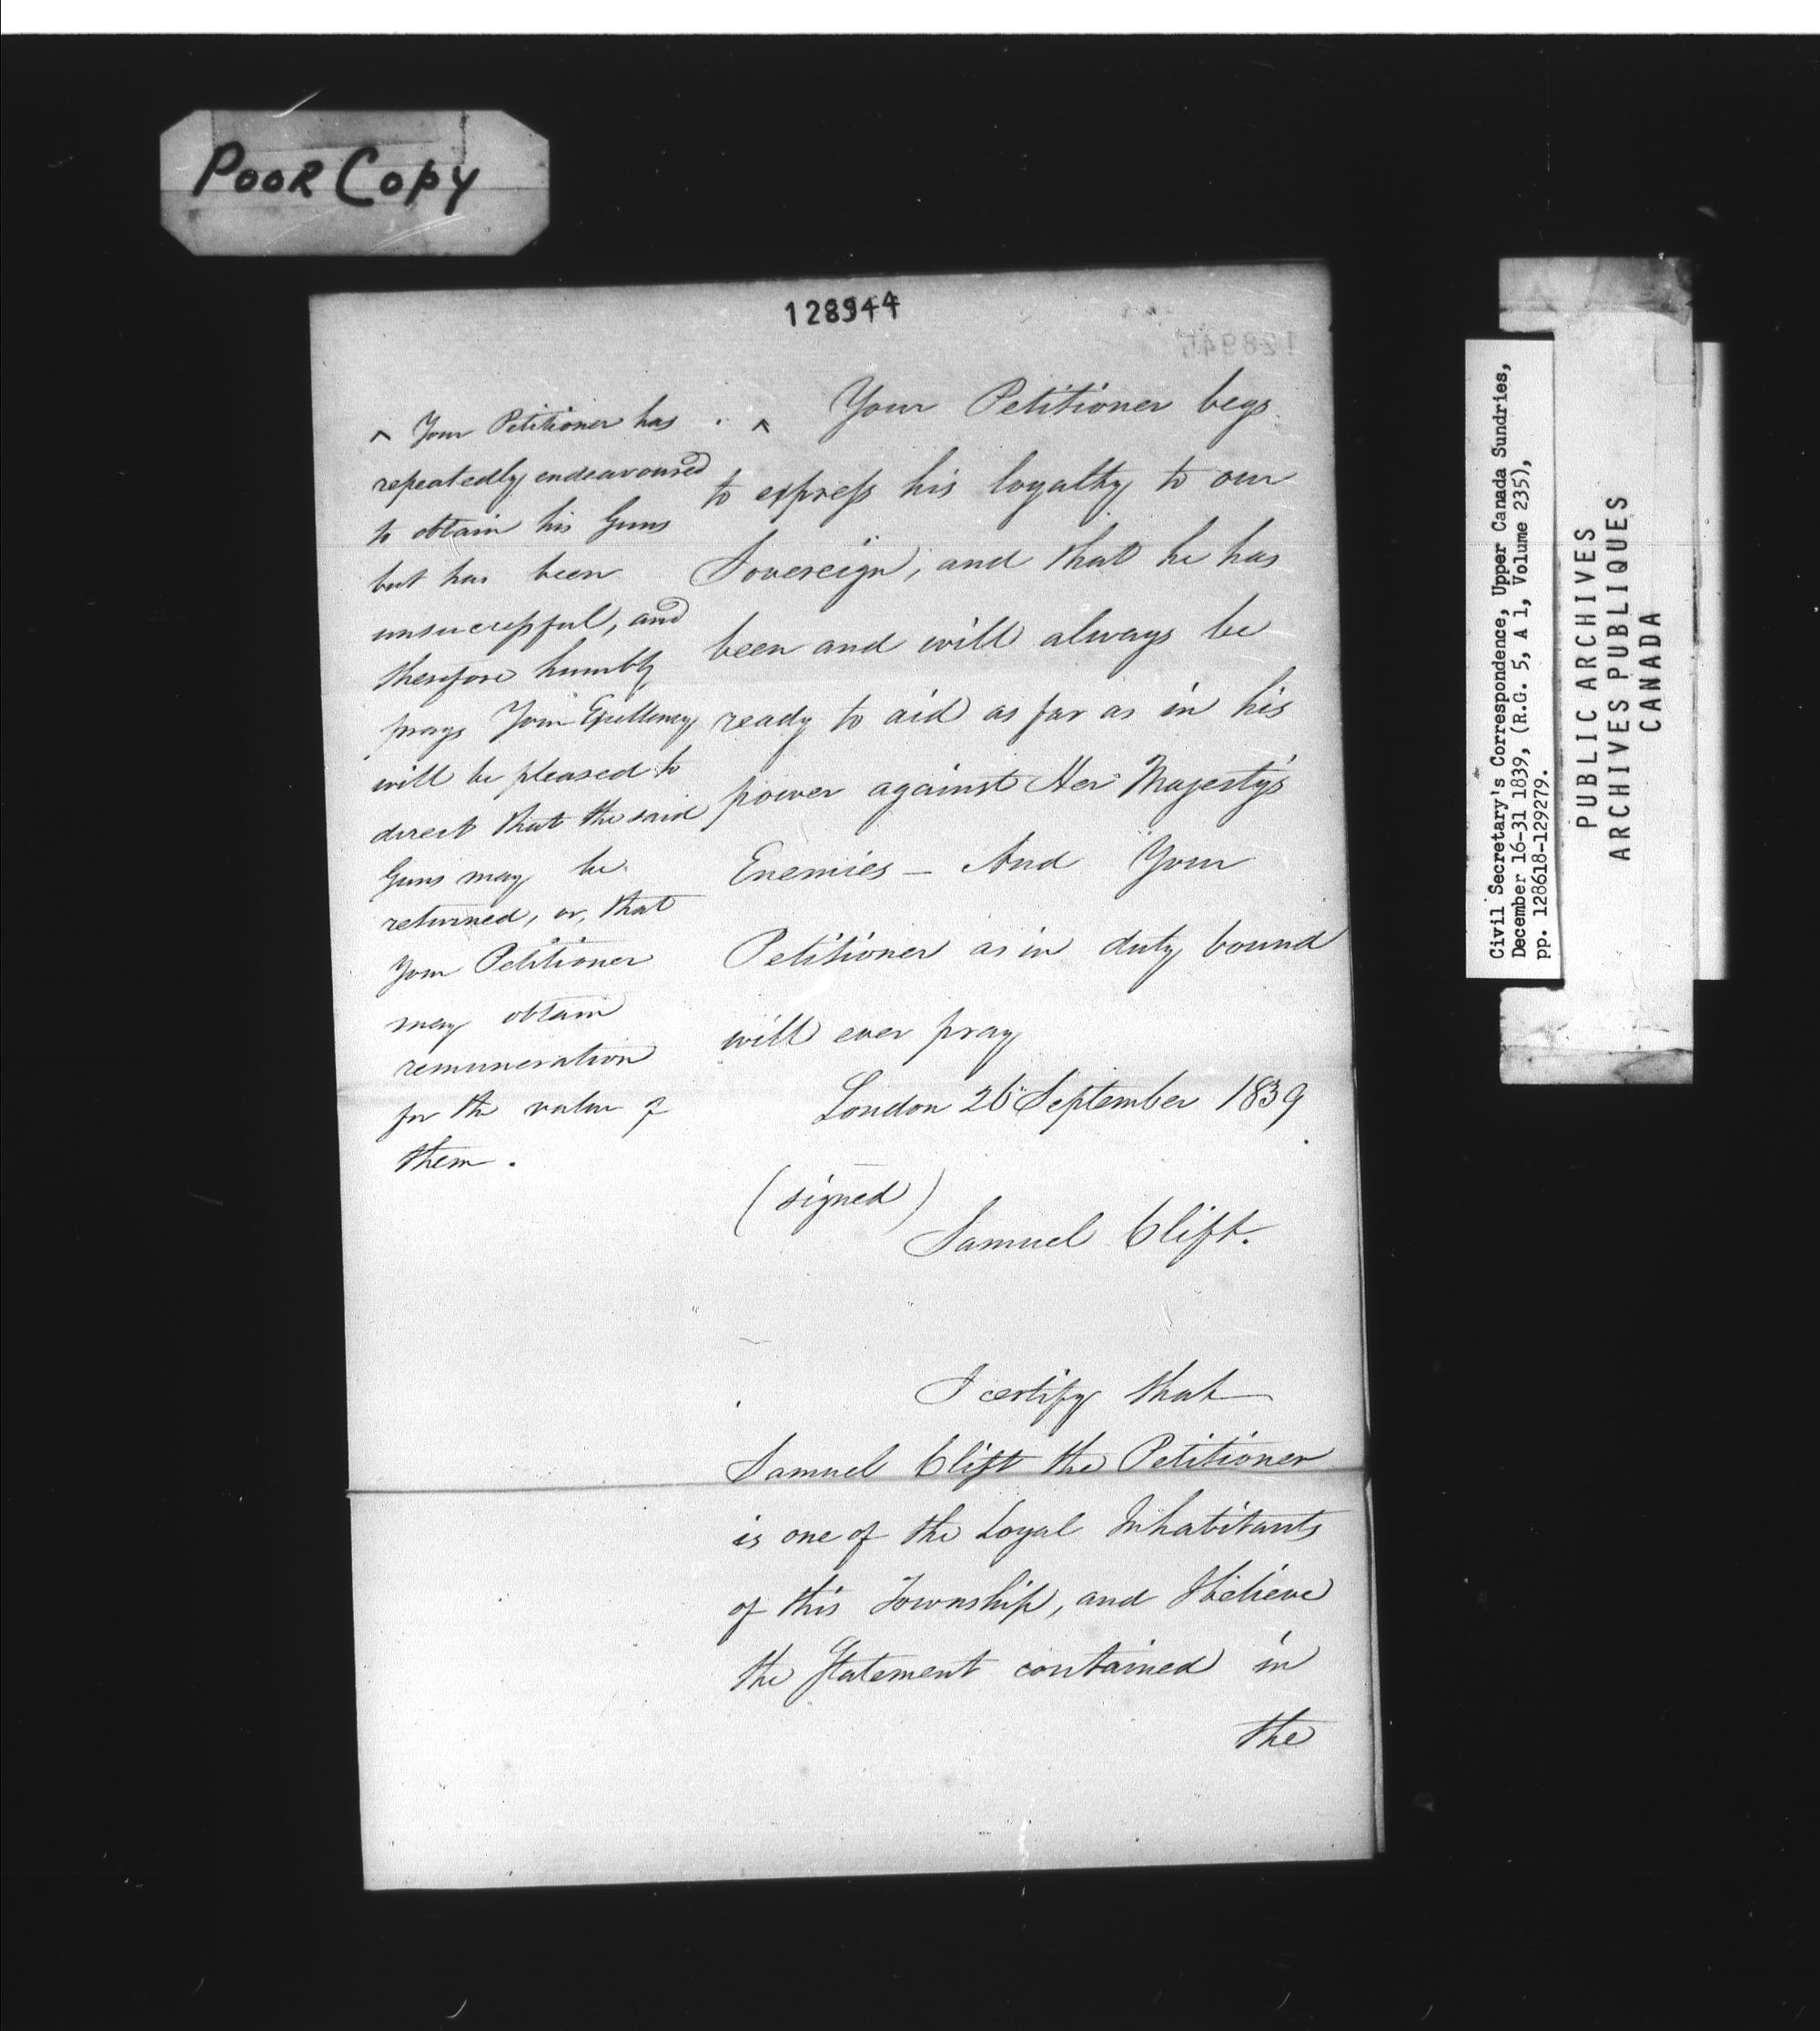 Poor Copy
128944
^ Your Petitioner has
repeatedly endeavoured
to obtain his Guns
but has been
unsuccessful, and
therefore humbly
prays Your Excellency
will be pleased to
direct that the said
Guns may be
returned, or, that
Your Petitioner
may obtain
remuneration
for the value of
them.
^ Your Petitioner begs
to express his loyalty to our
Sovereign, and that he has
been and will always be
ready to aid as far as in his
power against Her Majesty's
Enemies — And Your
Petitioner as in duty bound
will ever pray
London September 1839
(signed)
Samuel Clift.
I certify that
Samuel Clift the Petitioner
is one of the Loyal Inhabitants
of this Township, and I believe
the Statement contained in
the
Civil Secretary's Correspondence, Upper Canada Sundries,
December 16-31 1839, (R.G. 5, A 1, Volume 235),
pp. 128618-129279.
PUBLIC ARCHIVES
ARCHIVES PUBLIQUES
CANADA